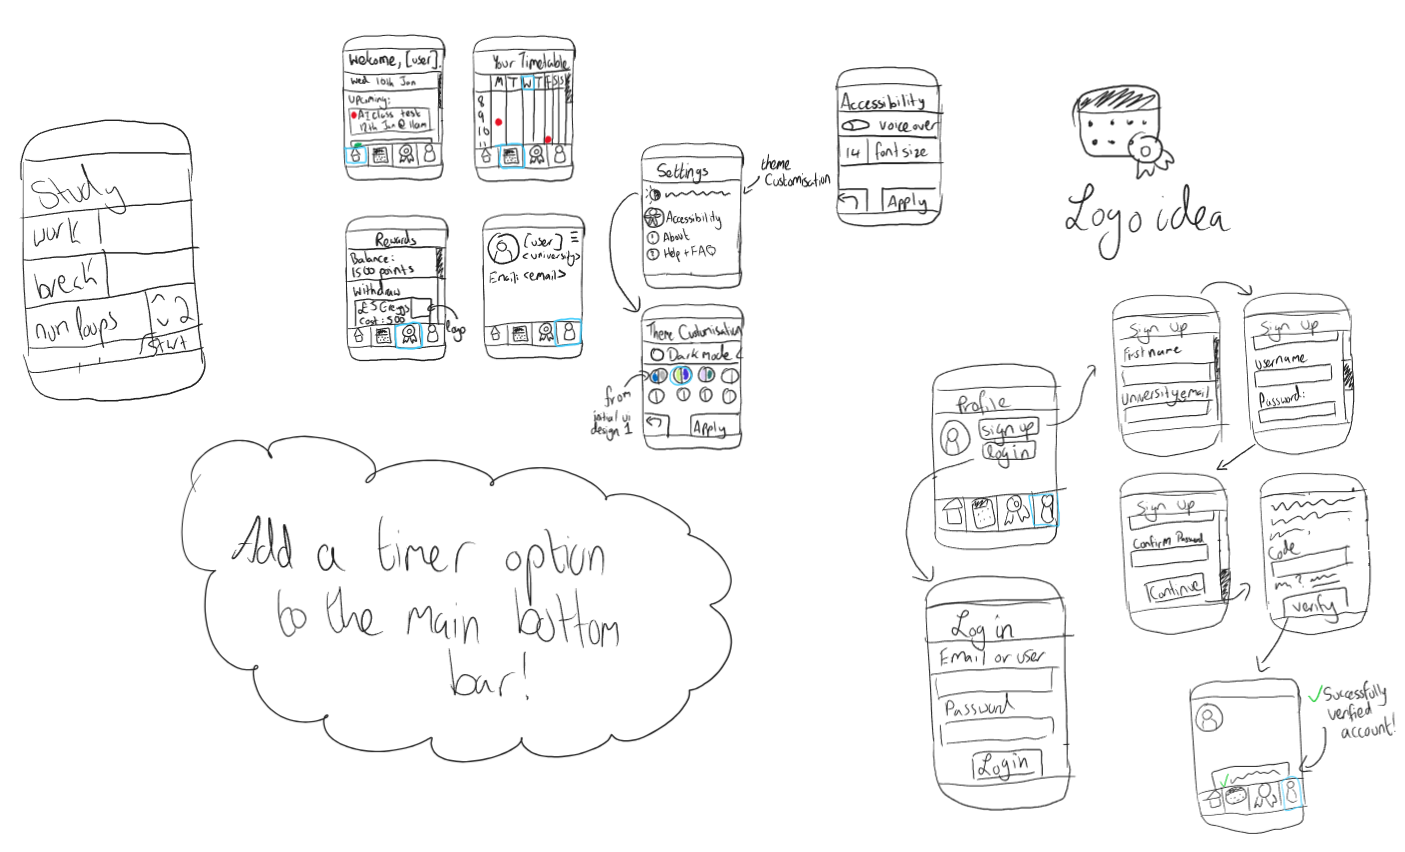 Study
work
break
num loops
2
Start
Welcome, [user].
Wed 10th Jan
Upcoming:
AI class test
12th Jan @ 11am
Your Timetable
M T W T F S S
8
9
10
11
Rewards
Balance:
1500 points
Withdraw
£5 Greggs
Cost: 500
logo
[user]
<university>
Email: <email>
Settings
Accessibility
About
Help + FAQ
theme
Customisation
Theme Customisation
Dark mode
Apply
from
initial ui
design 1
Accessibility
voice over
14 font size
Apply
Logo idea
Add a timer option
to the main bottom
bar!
Profile
sign up
log in
Log in
Email or user
Password
Login
Sign Up
First name
University email
Sign Up
Username
Password:
Sign Up
Confirm Password
Continue
Code
verify
Successfully
verified
account!